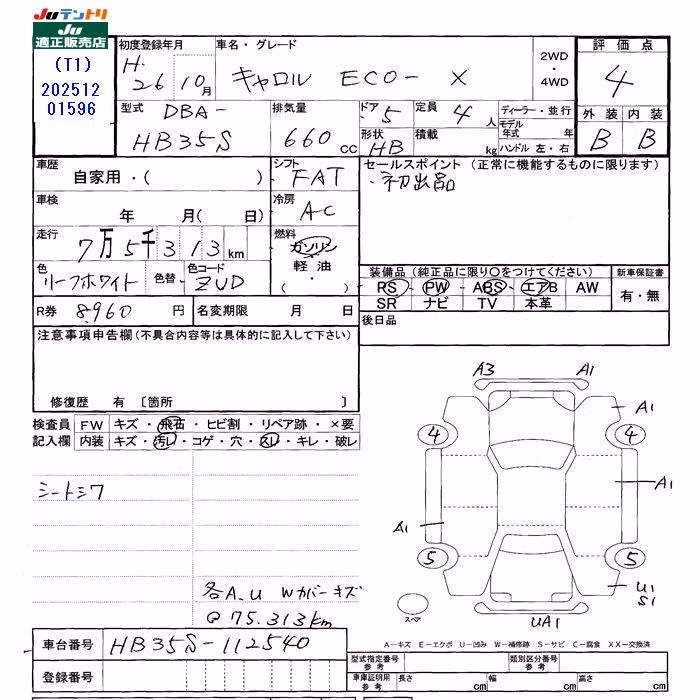 Juテントリ
Ju
適正販売店
(T1)
202512
01596
初度登録年月
H.
26年 10月
車名・グレード
キャロル ECO- X
2WD
・
4WD
評価点
4
外装 内装
B B
型式 DBA-
HB35S
排気量
660 cc
ドア 5
形状 HB
定員 4 人
積載 kg
ディーラー・並行
モデル年式 年
ハンドル 左・右
車歴
自家用・( )
シフト
FAT
セールスポイント (正常に機能するものに限ります)
・初出品
車検
年 月( 日)
冷房
AC
走行
7万5千313km
燃料
ガソリン
・
軽油
・
( )
色
リーフホワイト
色替
・
色コード
ZUD
装備品 (純正品に限り○をつけてください)
PS・PW・ABS・エアB・AW
SR・ナビ・TV・本革
新車保証書
有・無
R券 8,960 円
名変期限 月 日
後日品
注意事項申告欄(不具合内容等は具体的に記入して下さい)
修復歴 有 〔箇所 〕
検査員記入欄
FW キズ・飛石・ヒビ割・リペア跡・×要
内装 キズ・汚レ・コゲ・穴・スレ・キレ・破レ
シートシワ
各A.U Wカバーキズ
@75.313km
A3 A1
A1
4 4
A1
A1
5 5
U1
S1
UA1
スペア
A-キズ E-エクボ U-凹み W-補修跡 S-サビ C-腐食 XX-交換済
車台番号 HB35S-112540
登録番号
型式指定番号 参考
類別区分番号 参考
車庫証明用 参考
長さ cm
幅 cm
高さ cm